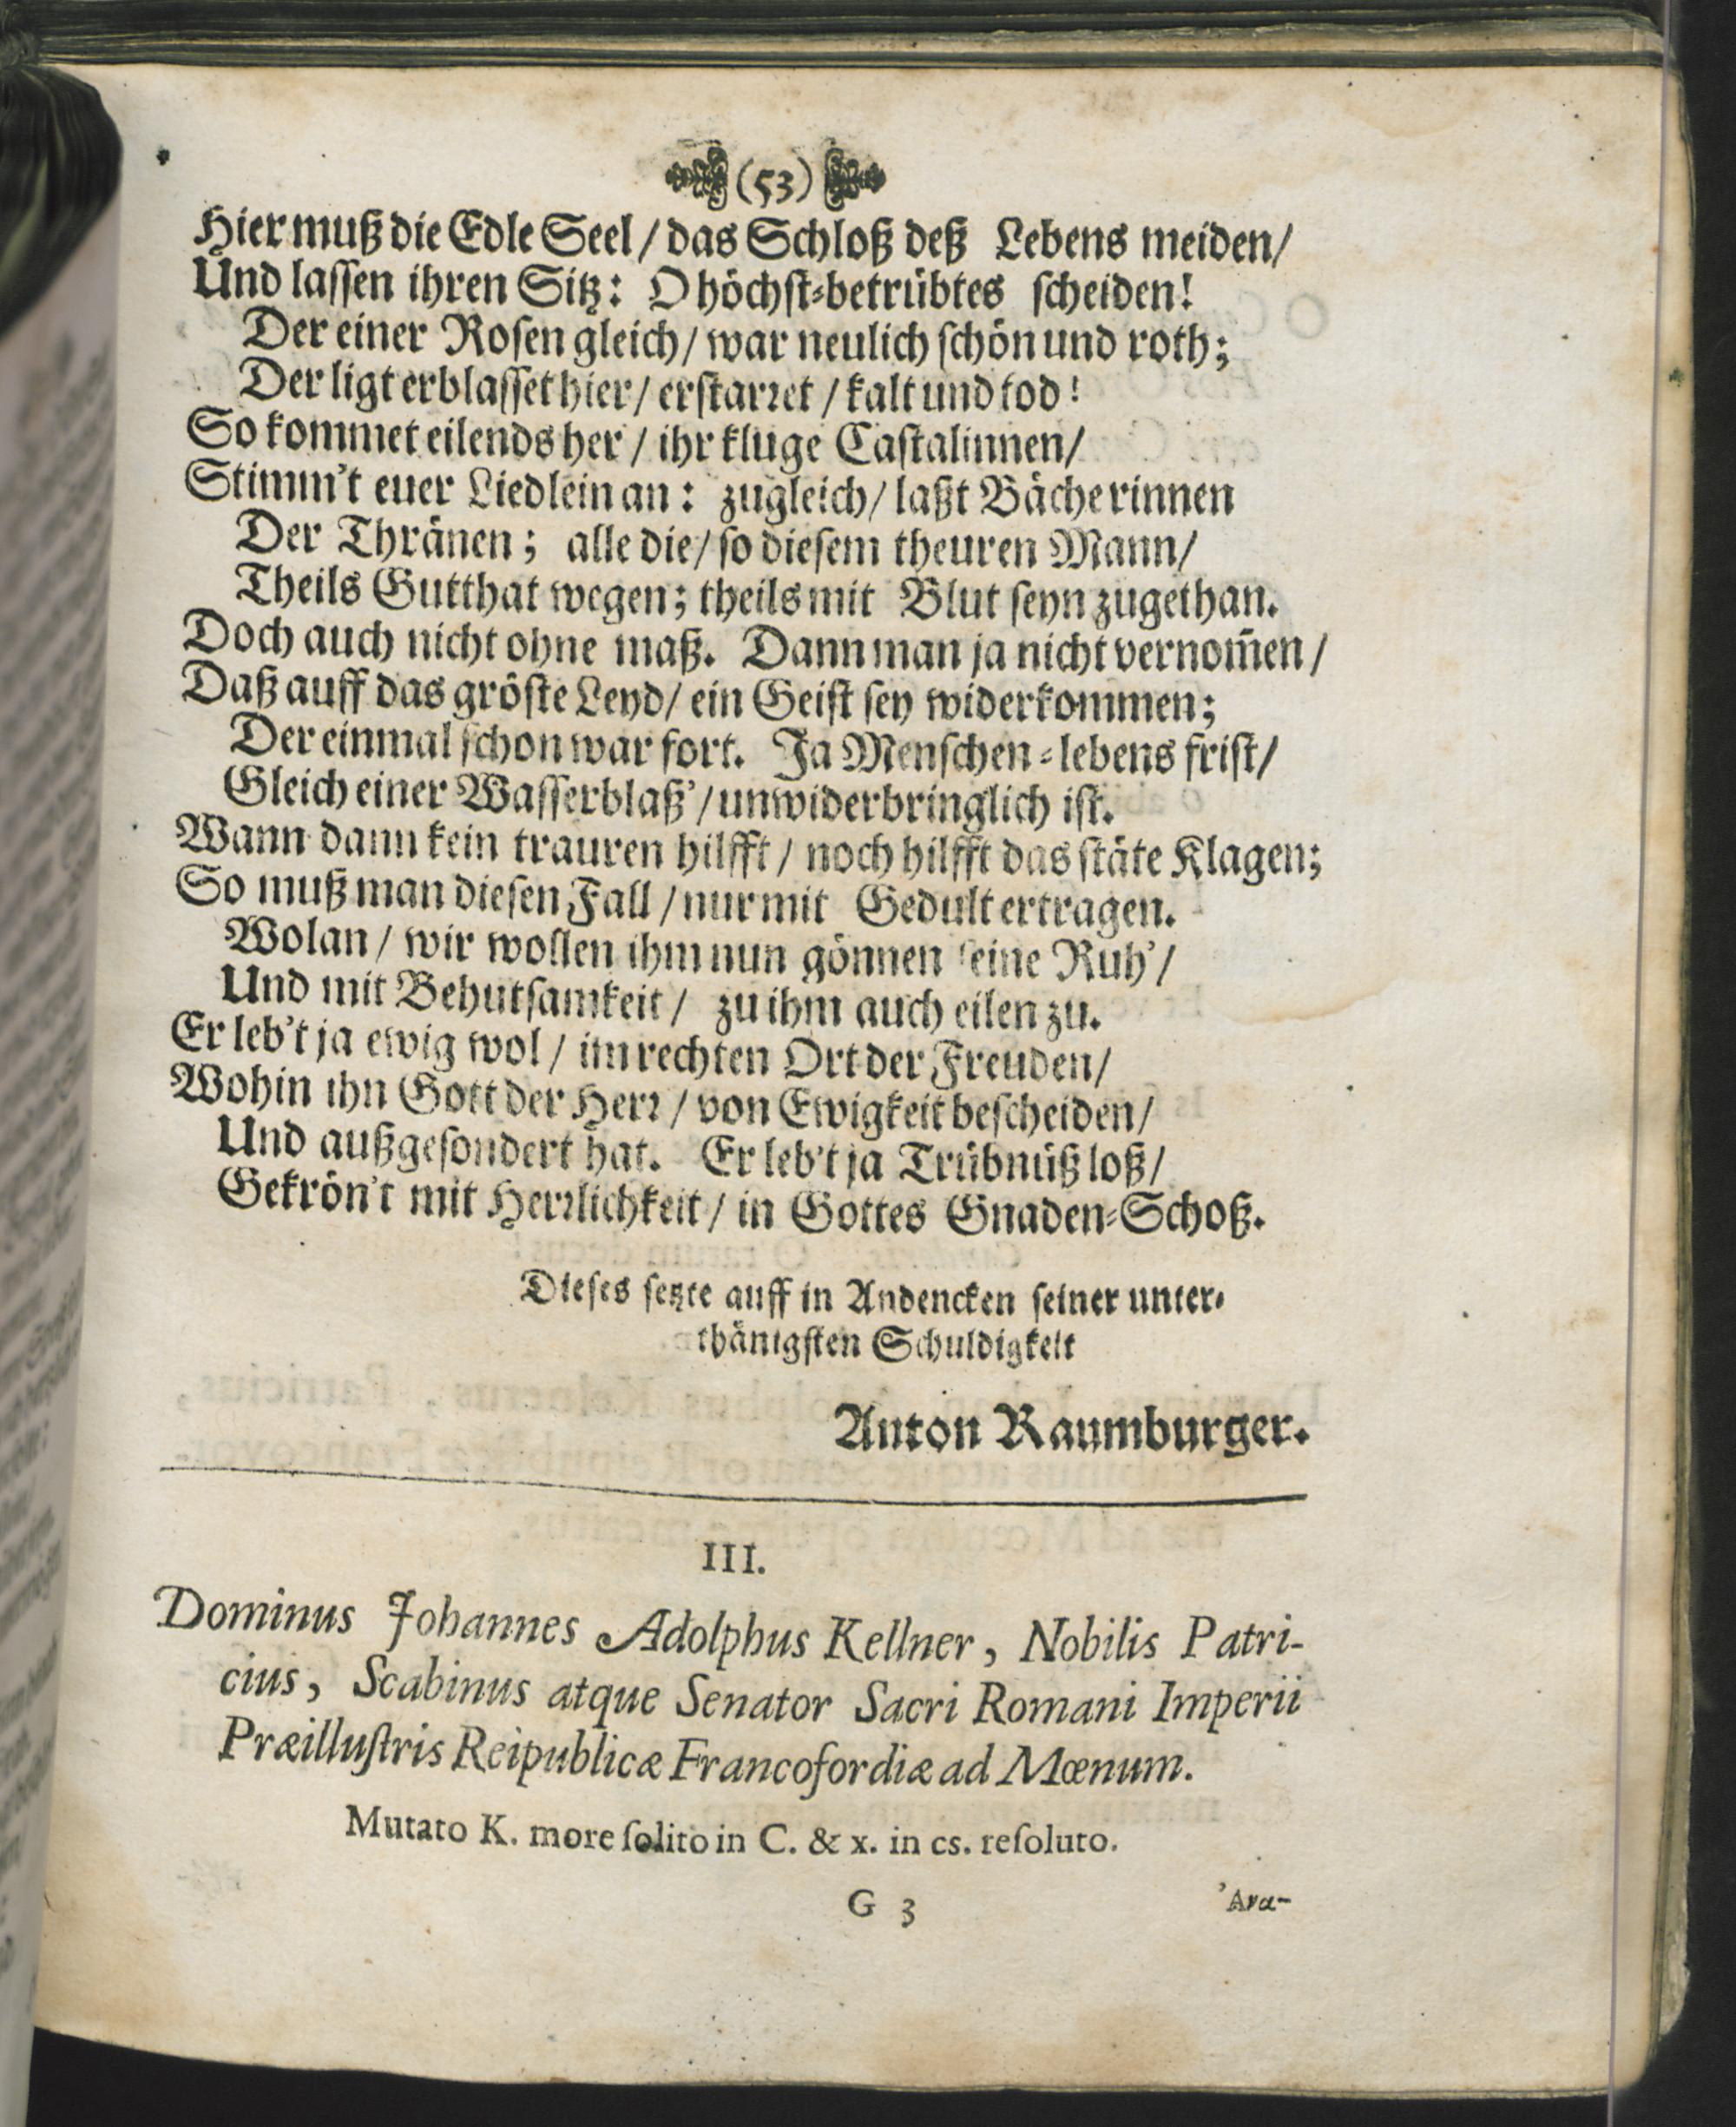 (53)
Hier muß die Edle Seel / das Schloß deß Lebens meiden /
Und lassen ihren Sitz: O höchst-betrübtes scheiden!
Der einer Rosen gleich / war neulich schön und roth;
Der ligt erblasset hier / erstarret / kalt und tod!
So kommet eilends her / ihr kluge Castalinnen /
Stimm't euer Liedlein an: zugleich / laßt Bäche rinnen
Der Thränen; alle die / so diesem theuren Mann /
Theils Gutthat wegen; theils mit Blut seyn zugethan.
Doch auch nicht ohne maß. Dann man ja nicht vernom̃en /
Daß auff das gröste Leyd / ein Geist sey widerkommen;
Der einmal schon war fort. Ja Menschen-lebens frist /
Gleich einer Wasserblaß' / unwiderbringlich ist.
Wann dann kein trauren hilfft / noch hilfft das stäte Klagen;
So muß man diesen Fall / nur mit Gedult ertragen.
Wolan / wir wollen ihm nun gönnen seine Ruh' /
Und mit Behutsamkeit / zu ihm auch eilen zu.
Er leb't ja ewig wol / im rechten Ort der Freuden /
Wohin ihn Gott der Herr / von Ewigkeit bescheiden /
Und außgesondert hat. Er leb't ja Trübnüß loß /
Gekrön't mit Herrlichkeit / in Gottes Gnaden-Schoß.
Dieses setzte auff in Andencken seiner unter-
thänigsten Schuldigkeit
Anton Raumburger.
III.
Dominus Johannes Adolphus Kellner, Nobilis Patri-
cius, Scabinus atque Senator Sacri Romani Imperii
Præillustris Reipublicæ Francofordiæ ad Mœnum.
Mutato K. more solito in C. & x. in cs. resoluto.
G 3 'Ανα-